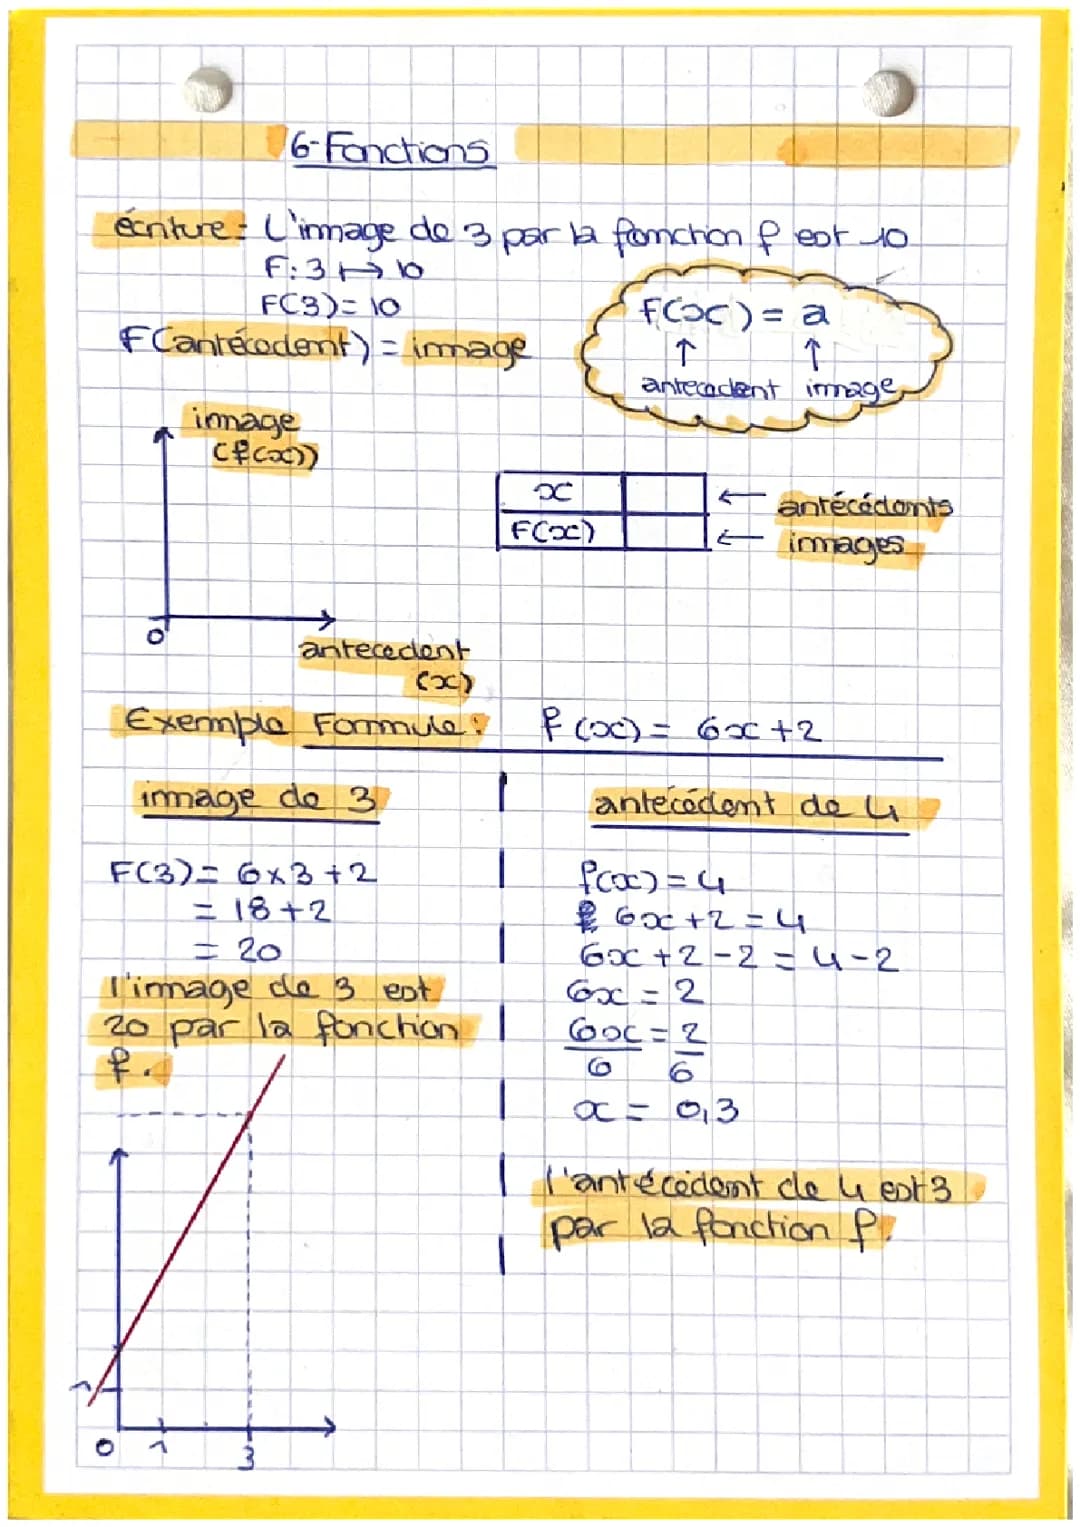 6-Fonctions
écriture: L'image de 3 par la fonction f est 10
F: 3 ↦ 10
F(3) = 10
F(antécédent) = image
F(x) = a
↑ ↑
antecedent image
image
(f(x))
x
F(x)
← antécédents
← images
0
antecedent
(x)
Exemple Formule: f(x) = 6x+2
image de 3
F(3) = 6×3+2
= 18+2
= 20
l'image de 3 est
20 par la fonction
f.
1
0 1 3
antécédent de 4
f(x) = 4
6x+2 = 4
6x+2-2 = 4-2
6x = 2
6x = 2
6 6
x = 0,3
l'antécédent de 4 est 3
par la fonction f.